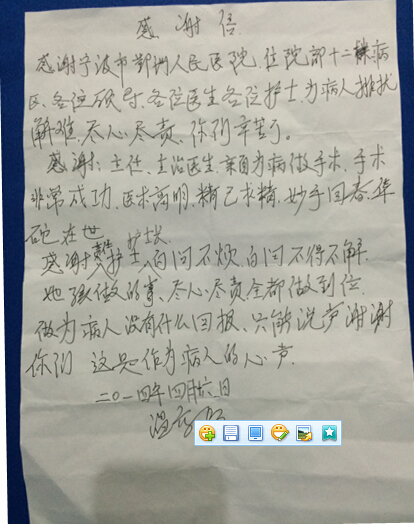 感谢信
感谢宁波市鄞州人民医院,住院部十二楼病
区,各位领导,各位医生各位护士,为病人排扰
解难,尽心尽责,你们辛苦了。
感谢:主任,主治医生,亲自为病做手术,手术
非常成功,医术高明,精己求精,妙手回春,华
砣在世
感谢责任护士,护士长,百问不烦,百问不得不解,
她强做的事,尽心尽责全都做到位,
做为病人没有什么回报,只能说声谢谢
你们 这是作为病人的心声,
二〇一四年四月六日